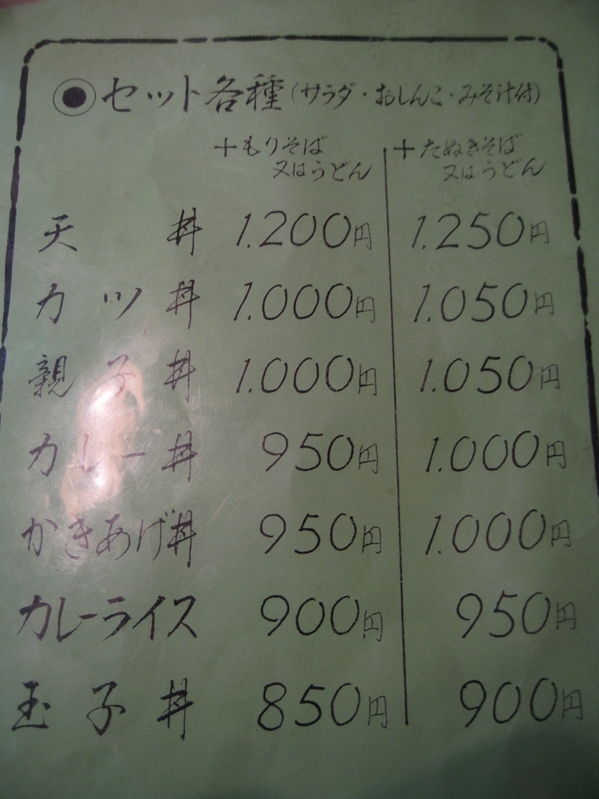 ◉セット各種(サラダ・おしんこ・みそ汁付)
+もりそば 又はうどん
+たぬきそば 又はうどん
天丼 1.200円 1.250円
カツ丼 1.000円 1.050円
親子丼 1.000円 1.050円
カレー丼 950円 1.000円
かきあげ丼 950円 1.000円
カレーライス 900円 950円
玉子丼 850円 900円